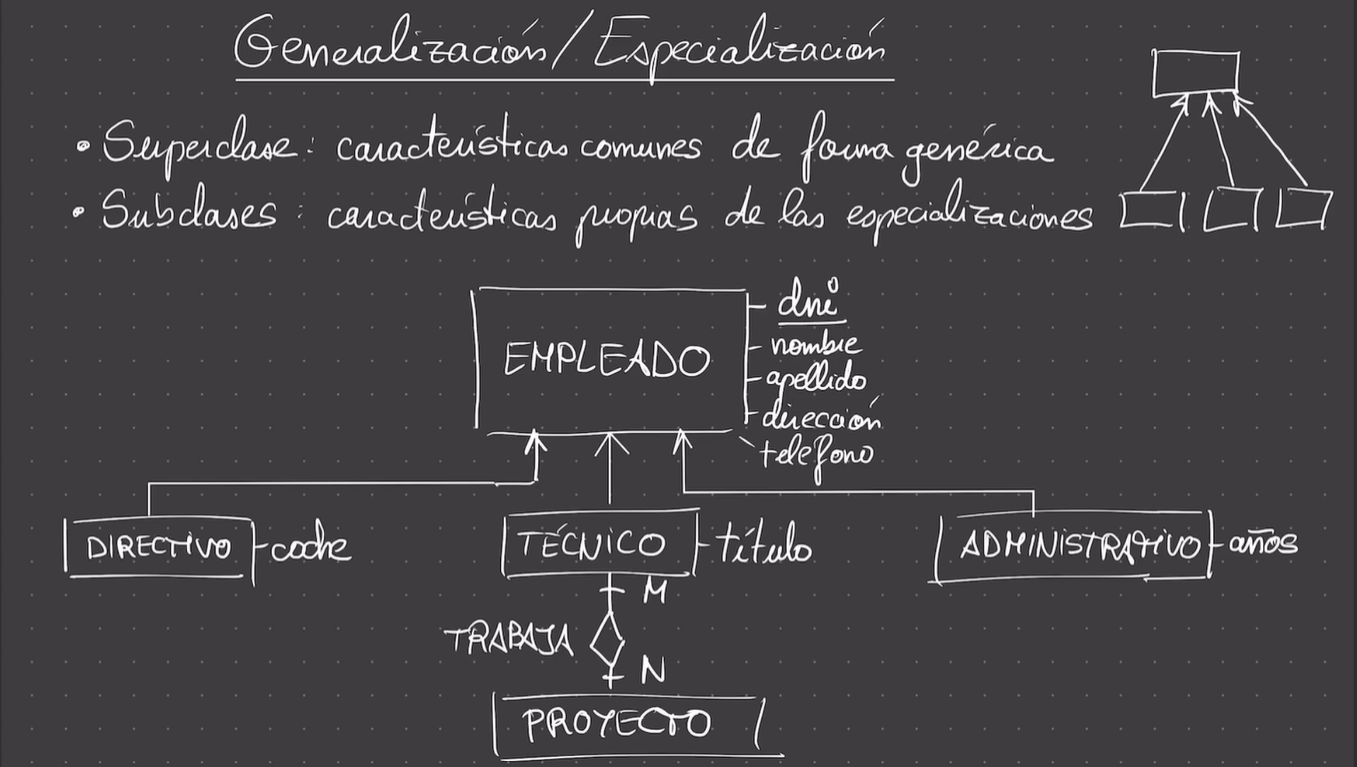 Generalización/Especialización
• Superclase: características comunes de forma genérica
• Subclases: características propias de las especializaciones
EMPLEADO
dni
nombre
apellido
dirección
teléfono
DIRECTIVO
coche
TÉCNICO
título
ADMINISTRATIVO
años
M
TRABAJA
N
PROYECTO